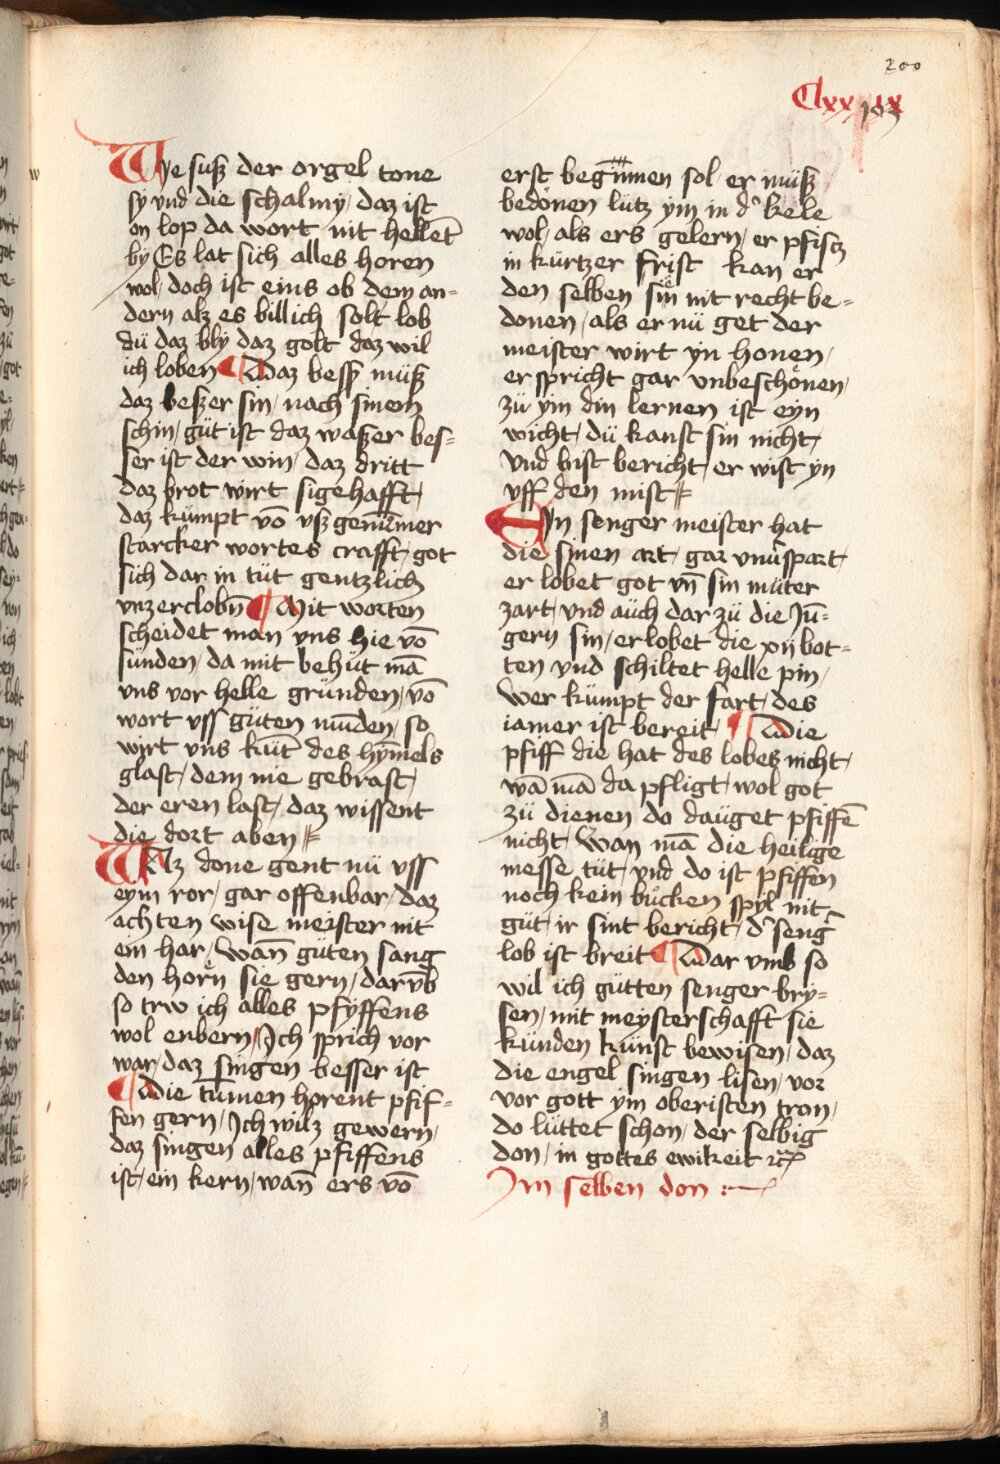 200
Clxx ix
193
Wye susz der orgel tone
sy vnd die schalmy / daz ist
on lop da wort nit hellet
by Es lat sich alles horen
wol / doch ist eins ob dem an-
dern alz es billich solt lob
dü daz bly daz golt daz wil
ich loben ¶ Waz bessz müsz
daz beszer sin / nach sinem
schin / güt ist daz waszer bes-
ser ist der win / daz dritt
daz brot wirt sigehafft /
daz kümpt vō vsz genūmer
starcker wortes crafft / got
sich dar in tüt gentzlich
vnzerclobn̄ ¶ Mit worten
scheidet man vns hie vō
sünden / da mit behüt mā
vns vor helle gründen / vō
wort vss güten munden / so
wirt vns kūt des hȳmels
glast / dem nie gebrast /
der eren last / daz wissent
die dort aben
Waz done gent nü vss
eym ror / gar offenbar / daz
achten wise meister nit
ein har / wan̄ güten sang
den horn̄ sie gern / darūb
so trw ich alles pfyffens
wol enbern / Ich sprich vor
war / daz singen besser ist
¶ Die tūmen horent pfif-
fen gern / Ich wilz gewern /
daz singen alles pfiffens
ist / ein kern / wan̄ ers vō
erst begīnnen sol er müsz
bedönen lütz ym in d' kele
wol / als ers gelern / er pfisz
in kürtzer frist kan er
den selben sin nit recht be-
donen / als er nü get der
meister wirt yn honen /
er spricht gar vnbeschönen /
zü ym din lernen ist eyn
wicht / dü kanst sin nicht /
vnd bist bericht / er wist yn
vff den mist
Eyn senger meister hat
die sinen art / gar vnuspart /
er lobet got vn̄ sin müter
zart / vnd aüch dar zü die Jü-
gern sin / er lobet die xij bot-
ten vnd schiltet helle pin /
Wer kümpt der fart / des
iamer ist bereit / ¶ Die
pfiff die hat des lobes nicht /
wā mā da pfligt / wol got
zü dienen do daüget pfiffē
nicht / Wan mā die heilige
messe tüt / vnd do ist pfiffen
noch kein bucken spyl nit
güt / ir sint bericht / d' seng'
lob ist breit ¶ Dar vmb so
wil ich gütten senger bry-
sen / mit meysterschafft sie
künden künst bewisen / daz
die engel singen lisen / vor
vor gott ym oberisten tron /
do lüttet schon / der selbig
don / in gottes ewikeit etc
Im selben don :-